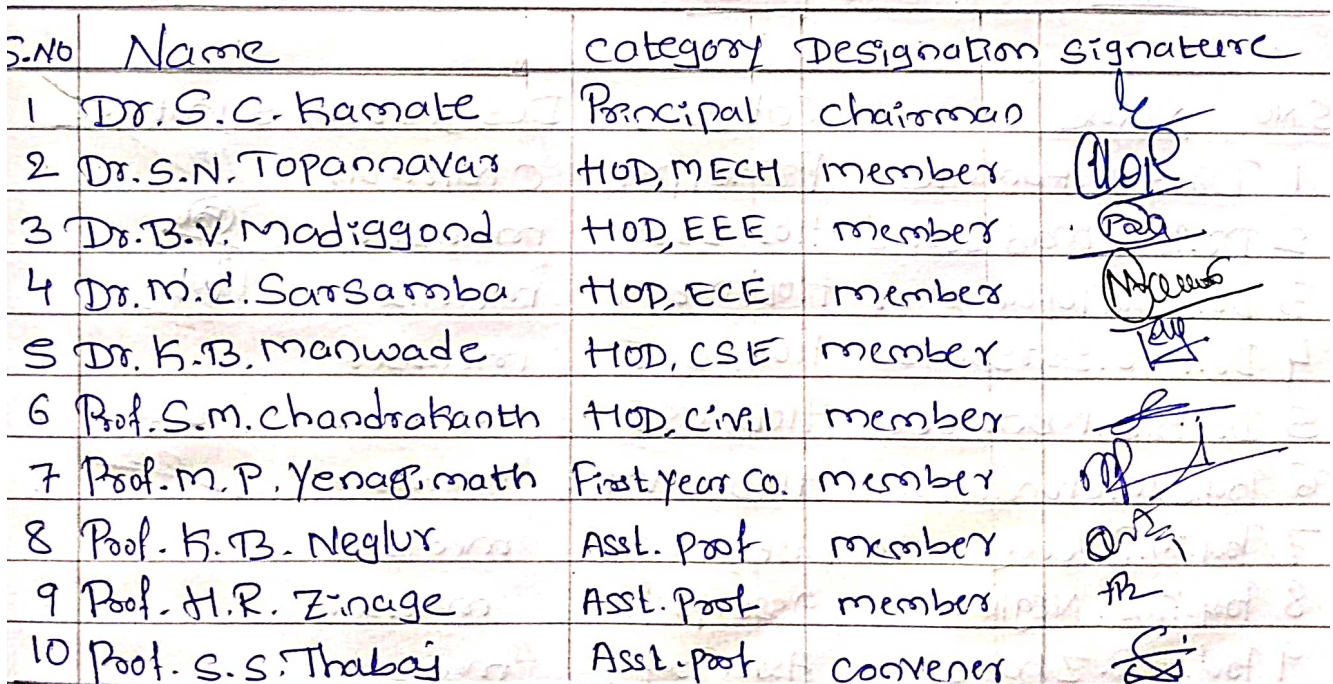 S.NO Name Category Designation Signature
1 Dr. S. C. Kamate Principal chairman
2 Dr. S. N. Topannavar HOD, MECH member
3 Dr. B. V. Madiggond HOD, EEE member
4 Dr. M. C. Sarsamba HOD, ECE member
5 Dr. K. B. Manwade HOD, CSE member
6 Prof. S. M. Chandrakanth HOD, Civil member
7 Prof. M. P. Yenagimath First Year Co. member
8 Prof. K. B. Neglur Asst. Prof member
9 Prof. H. R. Zinage Asst. Prof member
10 Prof. S. S. Thabaj Asst. prof convener